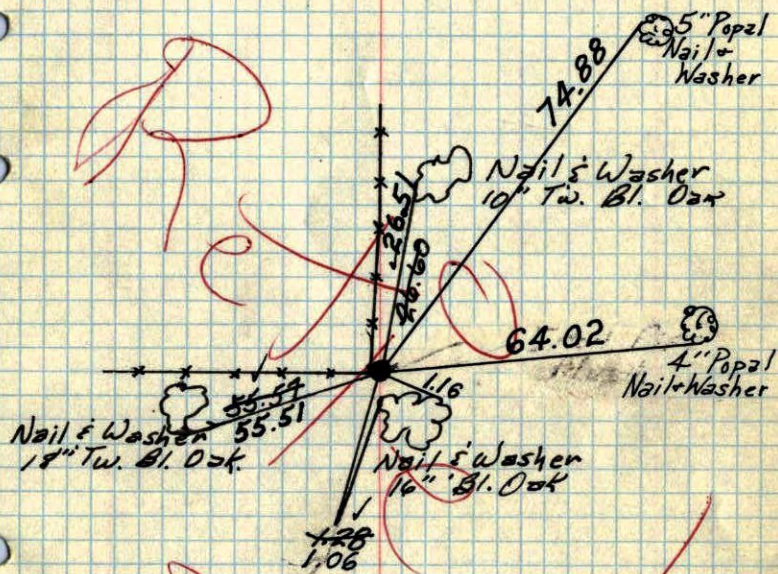 5" Popal
Nail +
Washer
74.88
Nail & Washer
10" Tw. Bl. Oak
26.51
26.60
64.02
4" Popal
Nail + Washer
1.16
55.54
55.51
Nail & Washer
18" Tw. Bl. Oak.
Nail & Washer
16" Bl. Oak
1.28
1.06